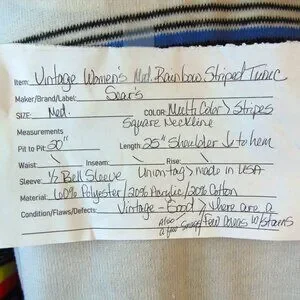 Item: Vintage Women's Med. Rainbow Striped Tunic
Maker/Brand/Label: Sear's
SIZE: Med. COLOR: Multi Color > Stripes
Measurements Square Neckline
Pit to Pit: 20" Length: 25" Shoulder ↓ to hem
Waist: Inseam: Rise:
Sleeve: 1/2 Bell Sleeve Union tag > made in USA
Material: 60% Polyester / 20% Acrylic / 20% Cotton
Condition/Flaws/Defects: Vintage - Good > there are a
few w/ stains
Also a few